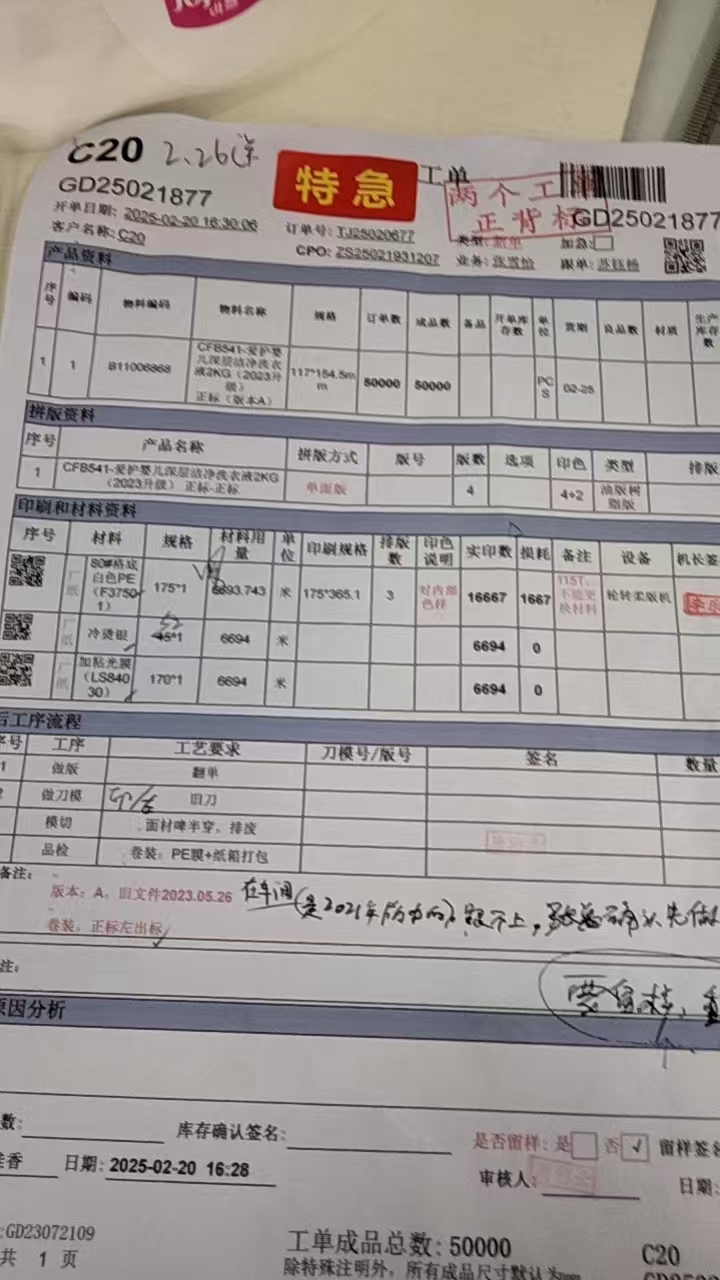 C20 2.26
特急 工单
两个工
正背标
GD25021877
GD25021877
开单日期: 2025-02-20 16:30:06
订单号: TJ25020677
类型: 翻单
加急:
客户名称: C20
CPO: ZS25021931207
业务:
跟单:
产品资料
序号 编码 物料编码 物料名称 规格 订单数 成品数 备品 开单库存数 单位 货期 良品数 材质 生产库存数
1 1 B11006868 CFB541-爱护婴儿深层洁净洗衣液2KG（2023升级）正标（版本A） 117*154.5mm 50000 50000 PCS 02-25
拼版资料
序号 产品名称 拼版方式 版号 版数 选项 印色 类型 排版
1 CFB541-爱护婴儿深层洁净洗衣液2KG（2023升级） 正标-正标 单面版 4 4+2 油版树脂版
印刷和材料资料
序号 材料 规格 材料用量 单位 印刷规格 排版数 印色说明 实印数 损耗 备注 设备 机长签
厂纸 80#格底白色PE（F37501） 175*1 6693.743 米 175*365.1 3 对内部色样 16667 1667 115T,不能更换材料 轮转柔版机
厂纸 冷烫银 45*1 52 6694 米 6694 0
厂纸 加粘光膜（LS84030） 170*1 6694 米 6694 0
后工序流程
序号 工序 工艺要求 刀模号/版号 签名 数量
1 做版 翻单
2 做刀模 旧刀
模切 面材啤半穿，排废
品检 卷装：PE膜+纸箱打包
备注:
版本：A，旧文件2023.05.26
卷装，正标左出标
注:
原因分析
数:
库存确认签名:
是否留样: 是 否 √ 留样签名
佳香 日期: 2025-02-20 16:28
审核人:
日期:
:GD23072109
工单成品总数: 50000
C20
共 1 页
除特殊注明外，所有成品尺寸默认为